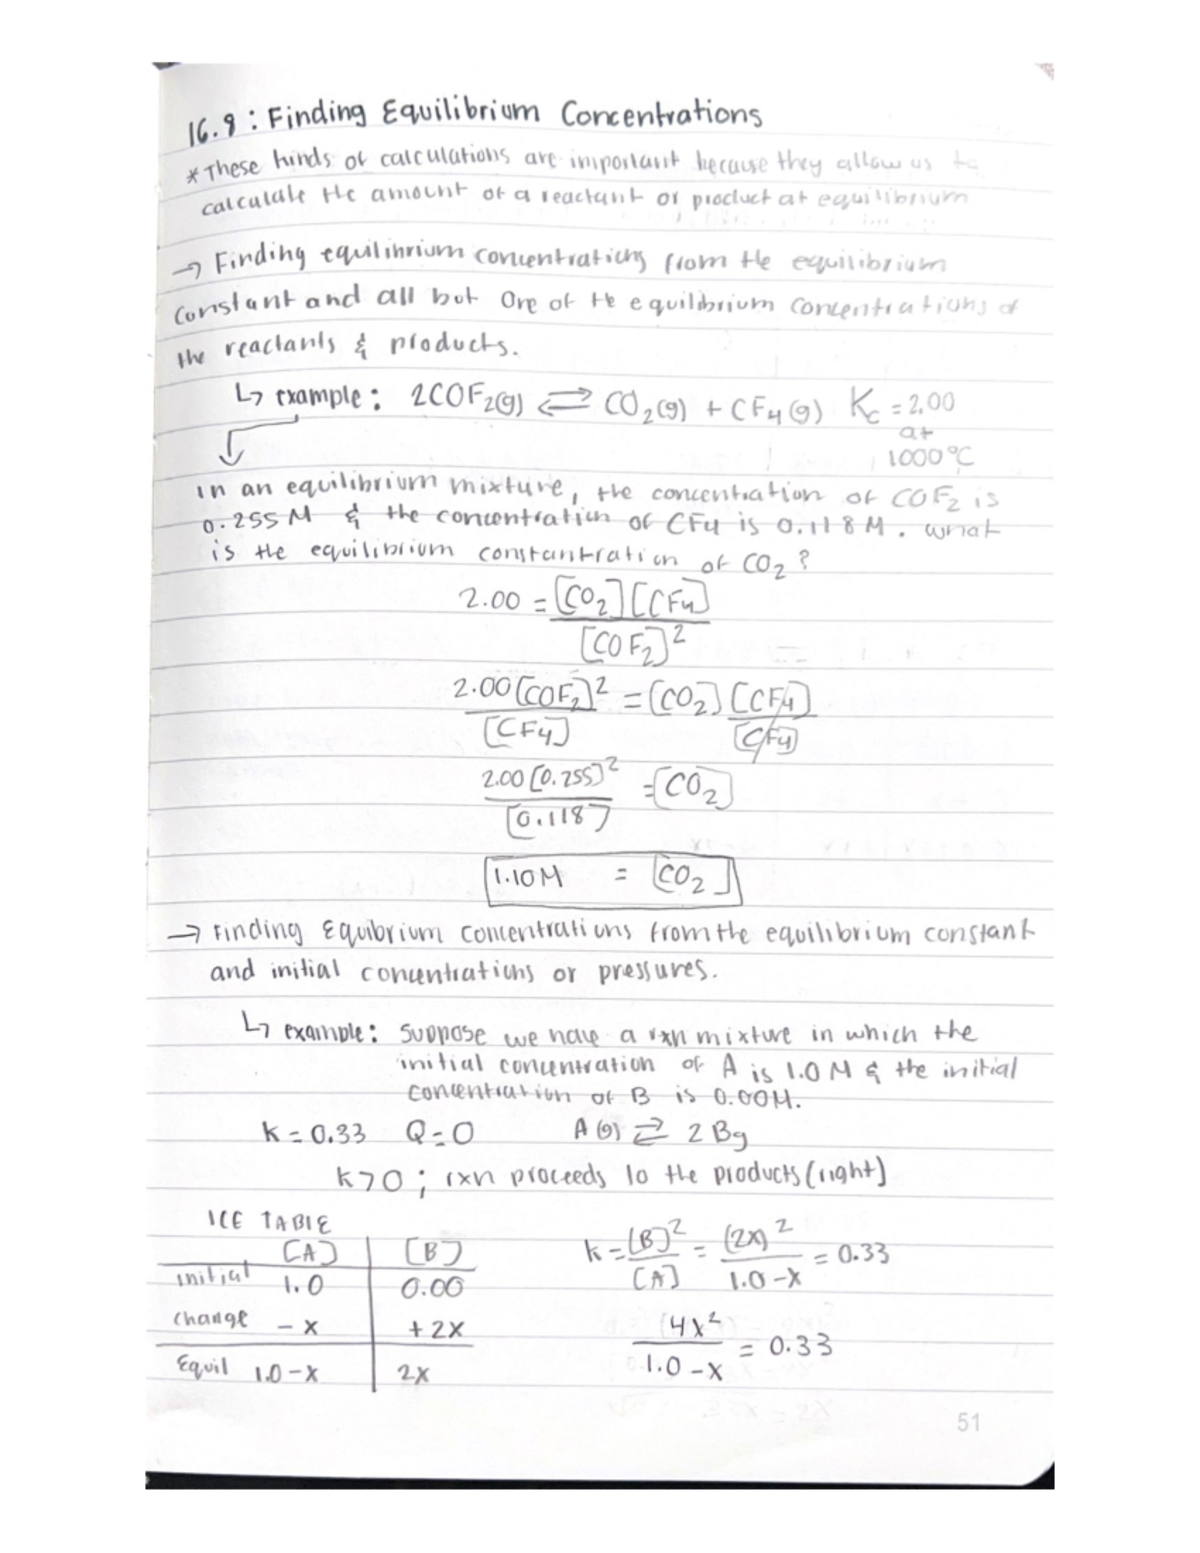 16.8: Finding Equilibrium Concentrations
*These kinds of calculations are important because they allow us to
calculate the amount of a reactant or product at equilibrium
→ Finding equilibrium concentrations from the equilibrium
constant and all but One of the equilibrium concentrations of
the reactants & products.
↳ example: 2COF₂(g) ⇌ CO₂(g) + CF₄(g) Kc = 2.00
at
1000°C
In an equilibrium mixture, the concentration of COF₂ is
0.255M & the concentration of CF₄ is 0.118M. what
is the equilibrium constantration of CO₂?
2.00 = [CO₂][CF₄]
[COF₂]²
2.00[COF₂]² = [CO₂] [CF₄]
[CF₄] [CF₄]
2.00[0.255]² = [CO₂]
[0.118]
1.10M = [CO₂]
→ Finding Equibrium concentrations from the equilibrium constant
and initial concentrations or pressures.
↳ example: suppose we have a rxn mixture in which the
initial concentration of A is 1.0M & the initial
concentration of B is 0.00M.
K = 0.33 Q = 0 A(g) ⇌ 2Bg
K > 0 ; rxn proceeds to the products (right)
ICE TABLE
[A] [B] K = [B]² = (2x)² = 0.33
initial 1.0 0.00 [A] 1.0-x
change -x +2x (4x² = 0.33
Equil 1.0-x 2x 1.0-x
51